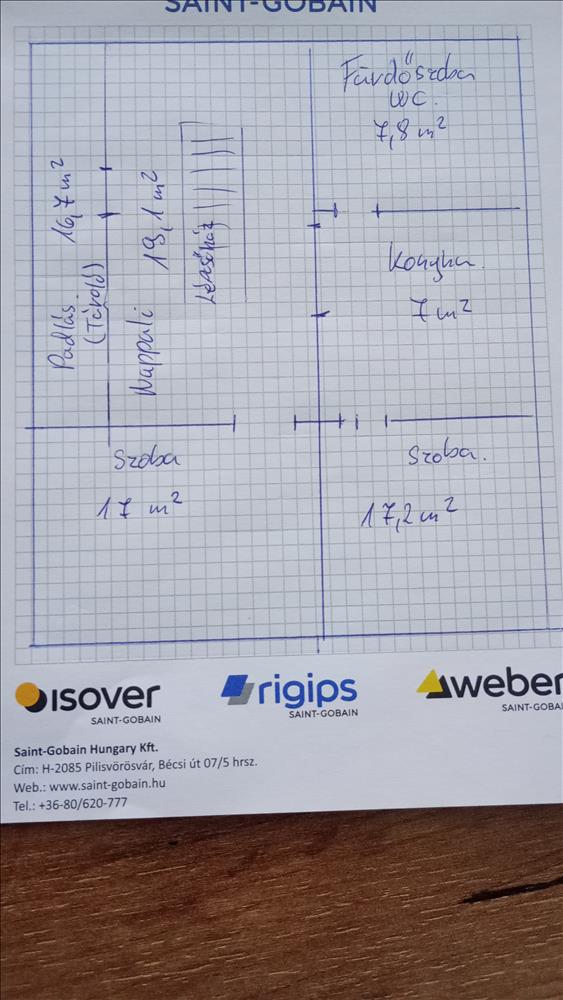 SAINT-GOBAIN
Fürdőszoba
WC.
7,8 m²
Padlás
(Tároló)
16,7 m²
Nappali
19,1 m²
Lépcsőház
Konyha.
7 m²
Szoba
17 m²
Szoba.
17,2 m²
isover
SAINT-GOBAIN
rigips
SAINT-GOBAIN
weber
SAINT-GOBAI
Saint-Gobain Hungary Kft.
Cím: H-2085 Pilisvörösvár, Bécsi út 07/5 hrsz.
Web.: www.saint-gobain.hu
Tel.: +36-80/620-777